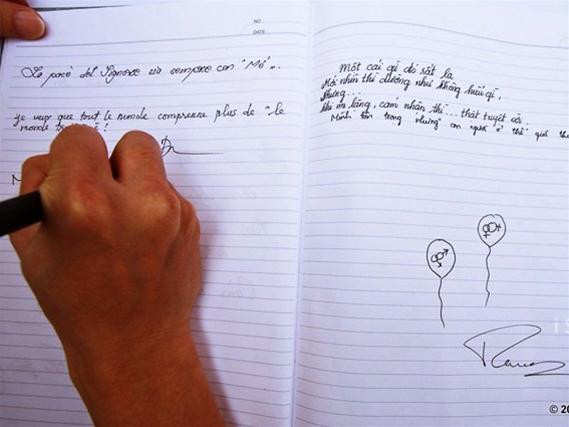 NO
DATE
La pace del Signore sia sempre con "Mở"...
je veux que tout le monde comprenne plus de "le
monde
Một cái gì đó rất lạ
Mới nhìn thì dường như không hiểu gì,
Nhưng...
khi im lặng, cảm nhận thì... thật tuyệt vời.
Mình tôn trọng "những" con người ở "thế" giới
© 20